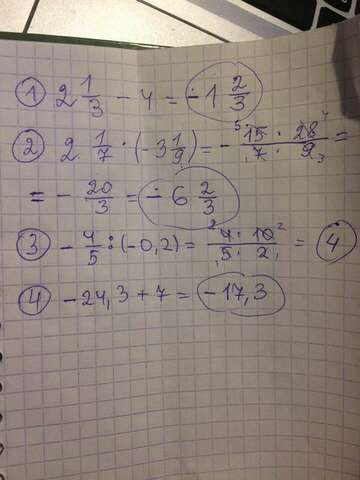 ① 2 1/3 - 4 = -1 2/3
② 2 1/7 · (-3 1/9) = - 15 · 28 / 7 · 9 =
= - 20/3 = -6 2/3
③ - 4/5 : (-0,2) = 4 · 10 / 5 · 2 = 4
④ -24,3 + 7 = -17,3